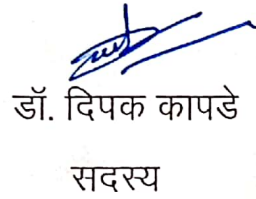 डॉ. दिपक कापडे
सदस्य